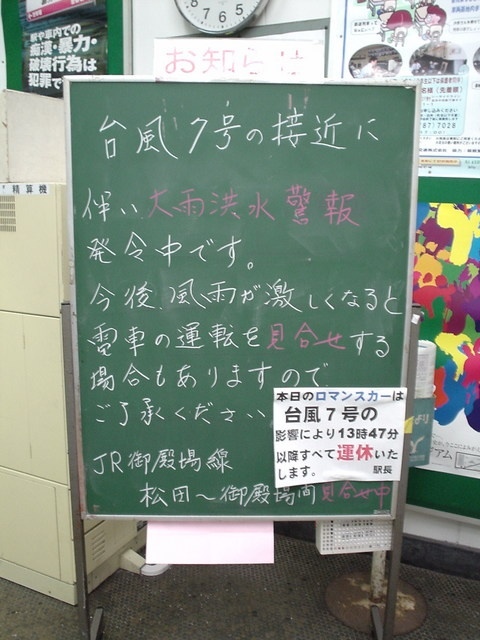 駅や車内での
痴漢・暴力・
破壊行為は
犯罪で
8 7 6 5
お知らせ
精算機
台風7号の接近に
伴い大雨洪水警報
発令中です。
今後、風雨が激しくなると
電車の運転を見合せする
場合もありますので
ご了承ください
JR御殿場線
松田～御殿場間見合せ中
本日のロマンスカーは
台風7号の
影響により13時47分
以降すべて運休いた
します。 駅長